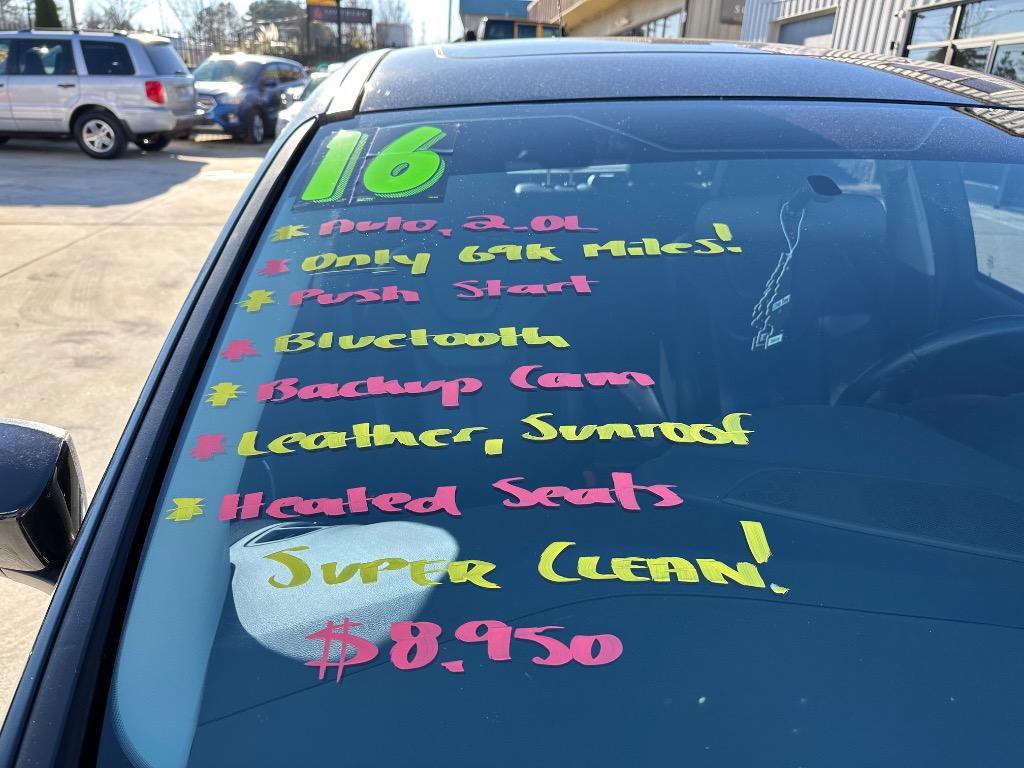 16
* Auto, 2.0L
* Only 69k Miles!
* Push Start
* Bluetooth
* Backup Cam
* Leather, Sunroof
* Heated Seats
Super Clean!
$8,950